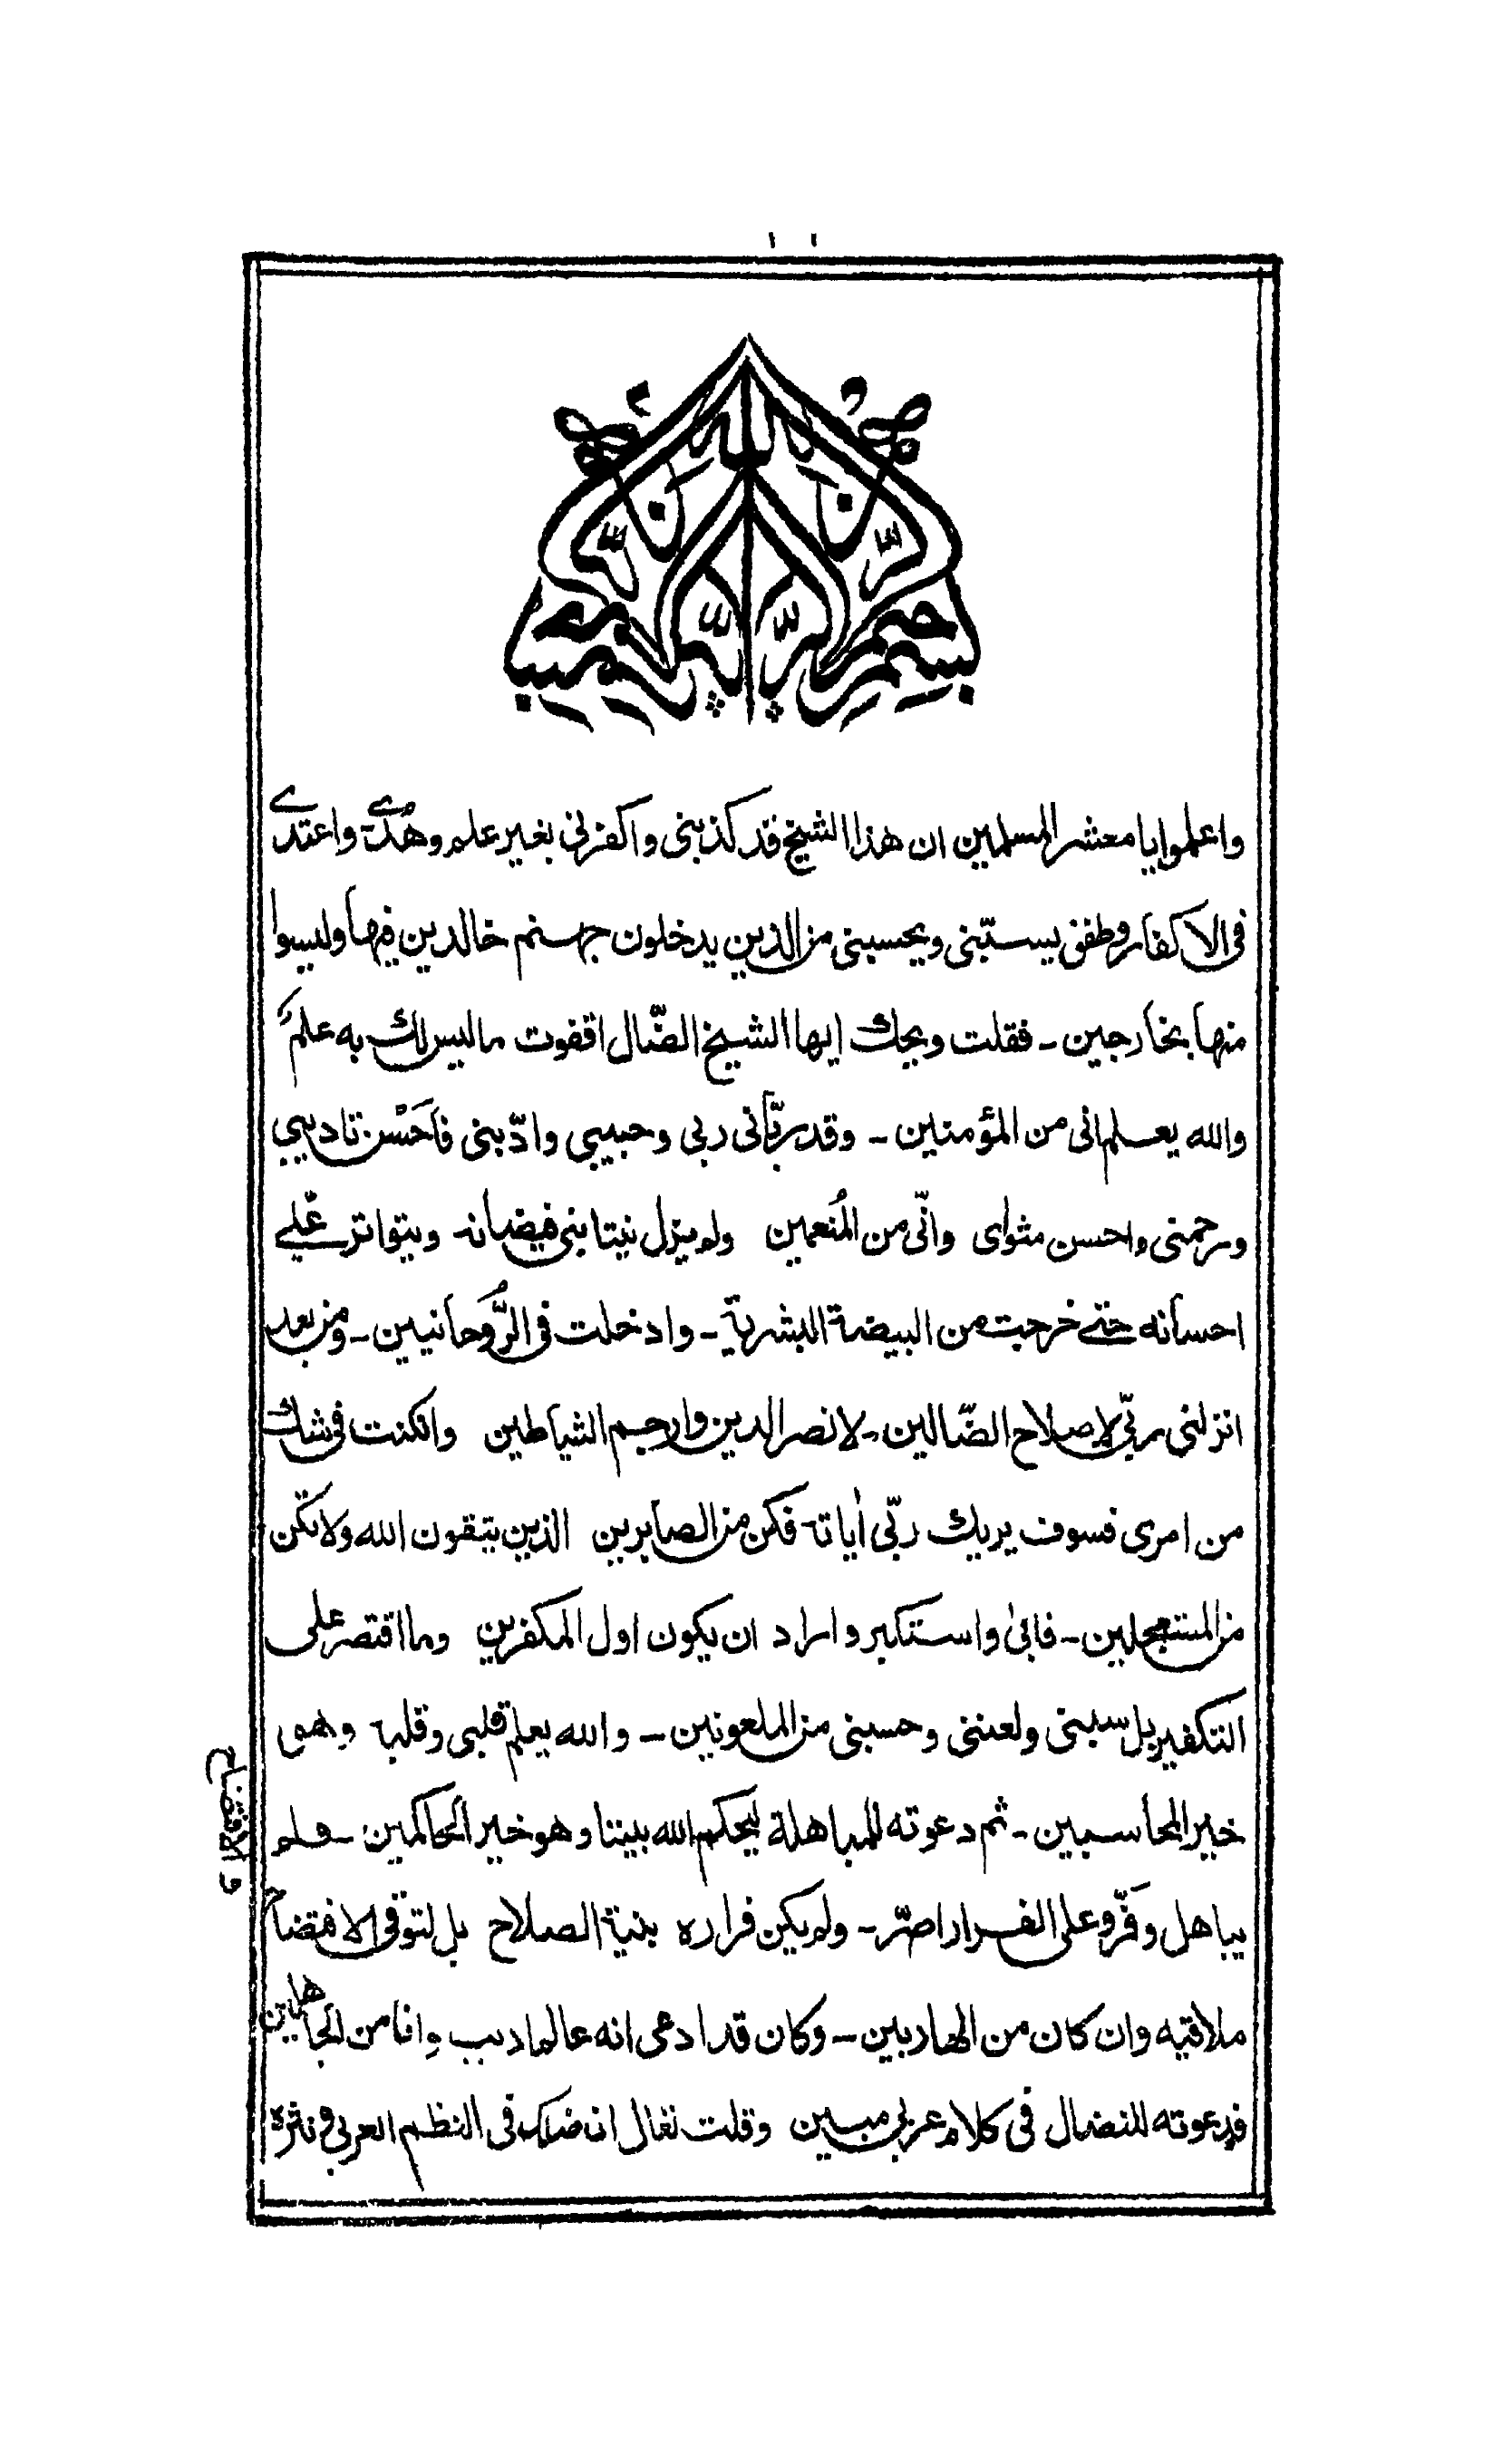 بسم الله الرحمن الرحيم
واعلموا يا معشر المسلمين ان هذا الشيخ قد كذبنى واكفرنى بغير علم وهُدًے واعتدے
فى الاكفار وطفق يسبّنى ويحسبنى من الذين يدخلون جهنم خالدين فيها وليسوا
منها بخارجين ۔ فقلت ويحك ايها الشيخ الضّال اقفوت ما ليس لك به علم
والله يعلم انى من المؤمنين ۔ وقد ربّانى ربى وحبيبى وادّبنى فاَحْسَن تاديبى
ورحمنى واحسن مثواى وانّى من المُنعمين ولم يزل ينتابنى فيضانه ويتواتر علّے
احسانه حتے خرجت من البيضة البشرية ۔ وادخلت فى الرُّوحانيين ۔ ومن بعد
انزلنى ربّى لاصلاح الضّالين ۔ لانصر الدين وارجم الشياطين وانكنت فى شك
من امرى فسوف يريك ربّى اٰياته فكن من الصابرين الذين يتقون الله ولا تكن
من المستعجلين ۔ فابىٰ واستكبر واراد ان يكون اول المكفرين وما اقتصر على
التكفير بل سبنى ولعننى وحسبنى من الملعونين ۔ والله يعلم قلبى وقلبه وهو
خير المحاسبين ۔ ثم دعوته للمباهلة ليحكم الله بيننا وهو خير الحاكمين ۔ فلم
يباهل وفَرَّ وعلى الفرار اصرّ ۔ ولم يكن فراره بنية الصلاح بل لتوقى الافتضاح
والافتضاح
ملاقيه وان كان من الهاربين ۔ وكان قد ادعى انه عالم اديب وانا من الجاهلين
فدعوته للنضال فى كلام عربى مبين وقلت تعال اناضلك فى النظم العربى ونثره